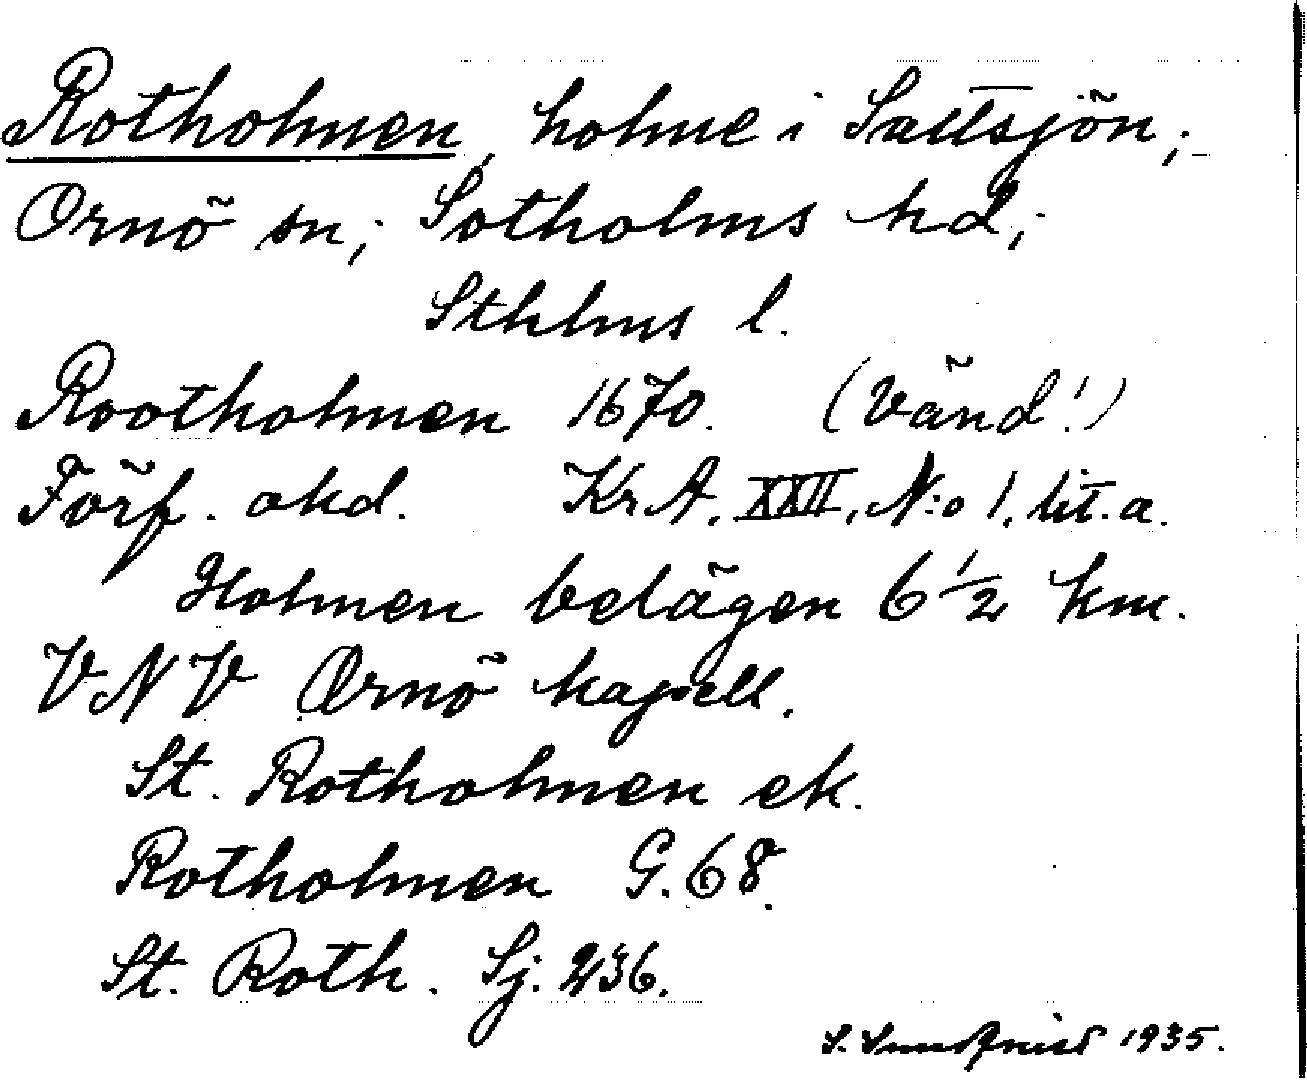 Rotholmen, holme i Saltsjön;
Ornö sn; Sotholms hd;
Sthlms l.
Rootholmen 1670. (Vänd!)
Förf. okd. Kr.A. XXII, N:o 1, lit. a.
Holmen belägen 6 1/2 km.
VNV Ornö kapell.
St. Rotholmen ek.
Rotholmen G. 68.
St. Roth. Sj. 236.
S. Sundqvist 1935.